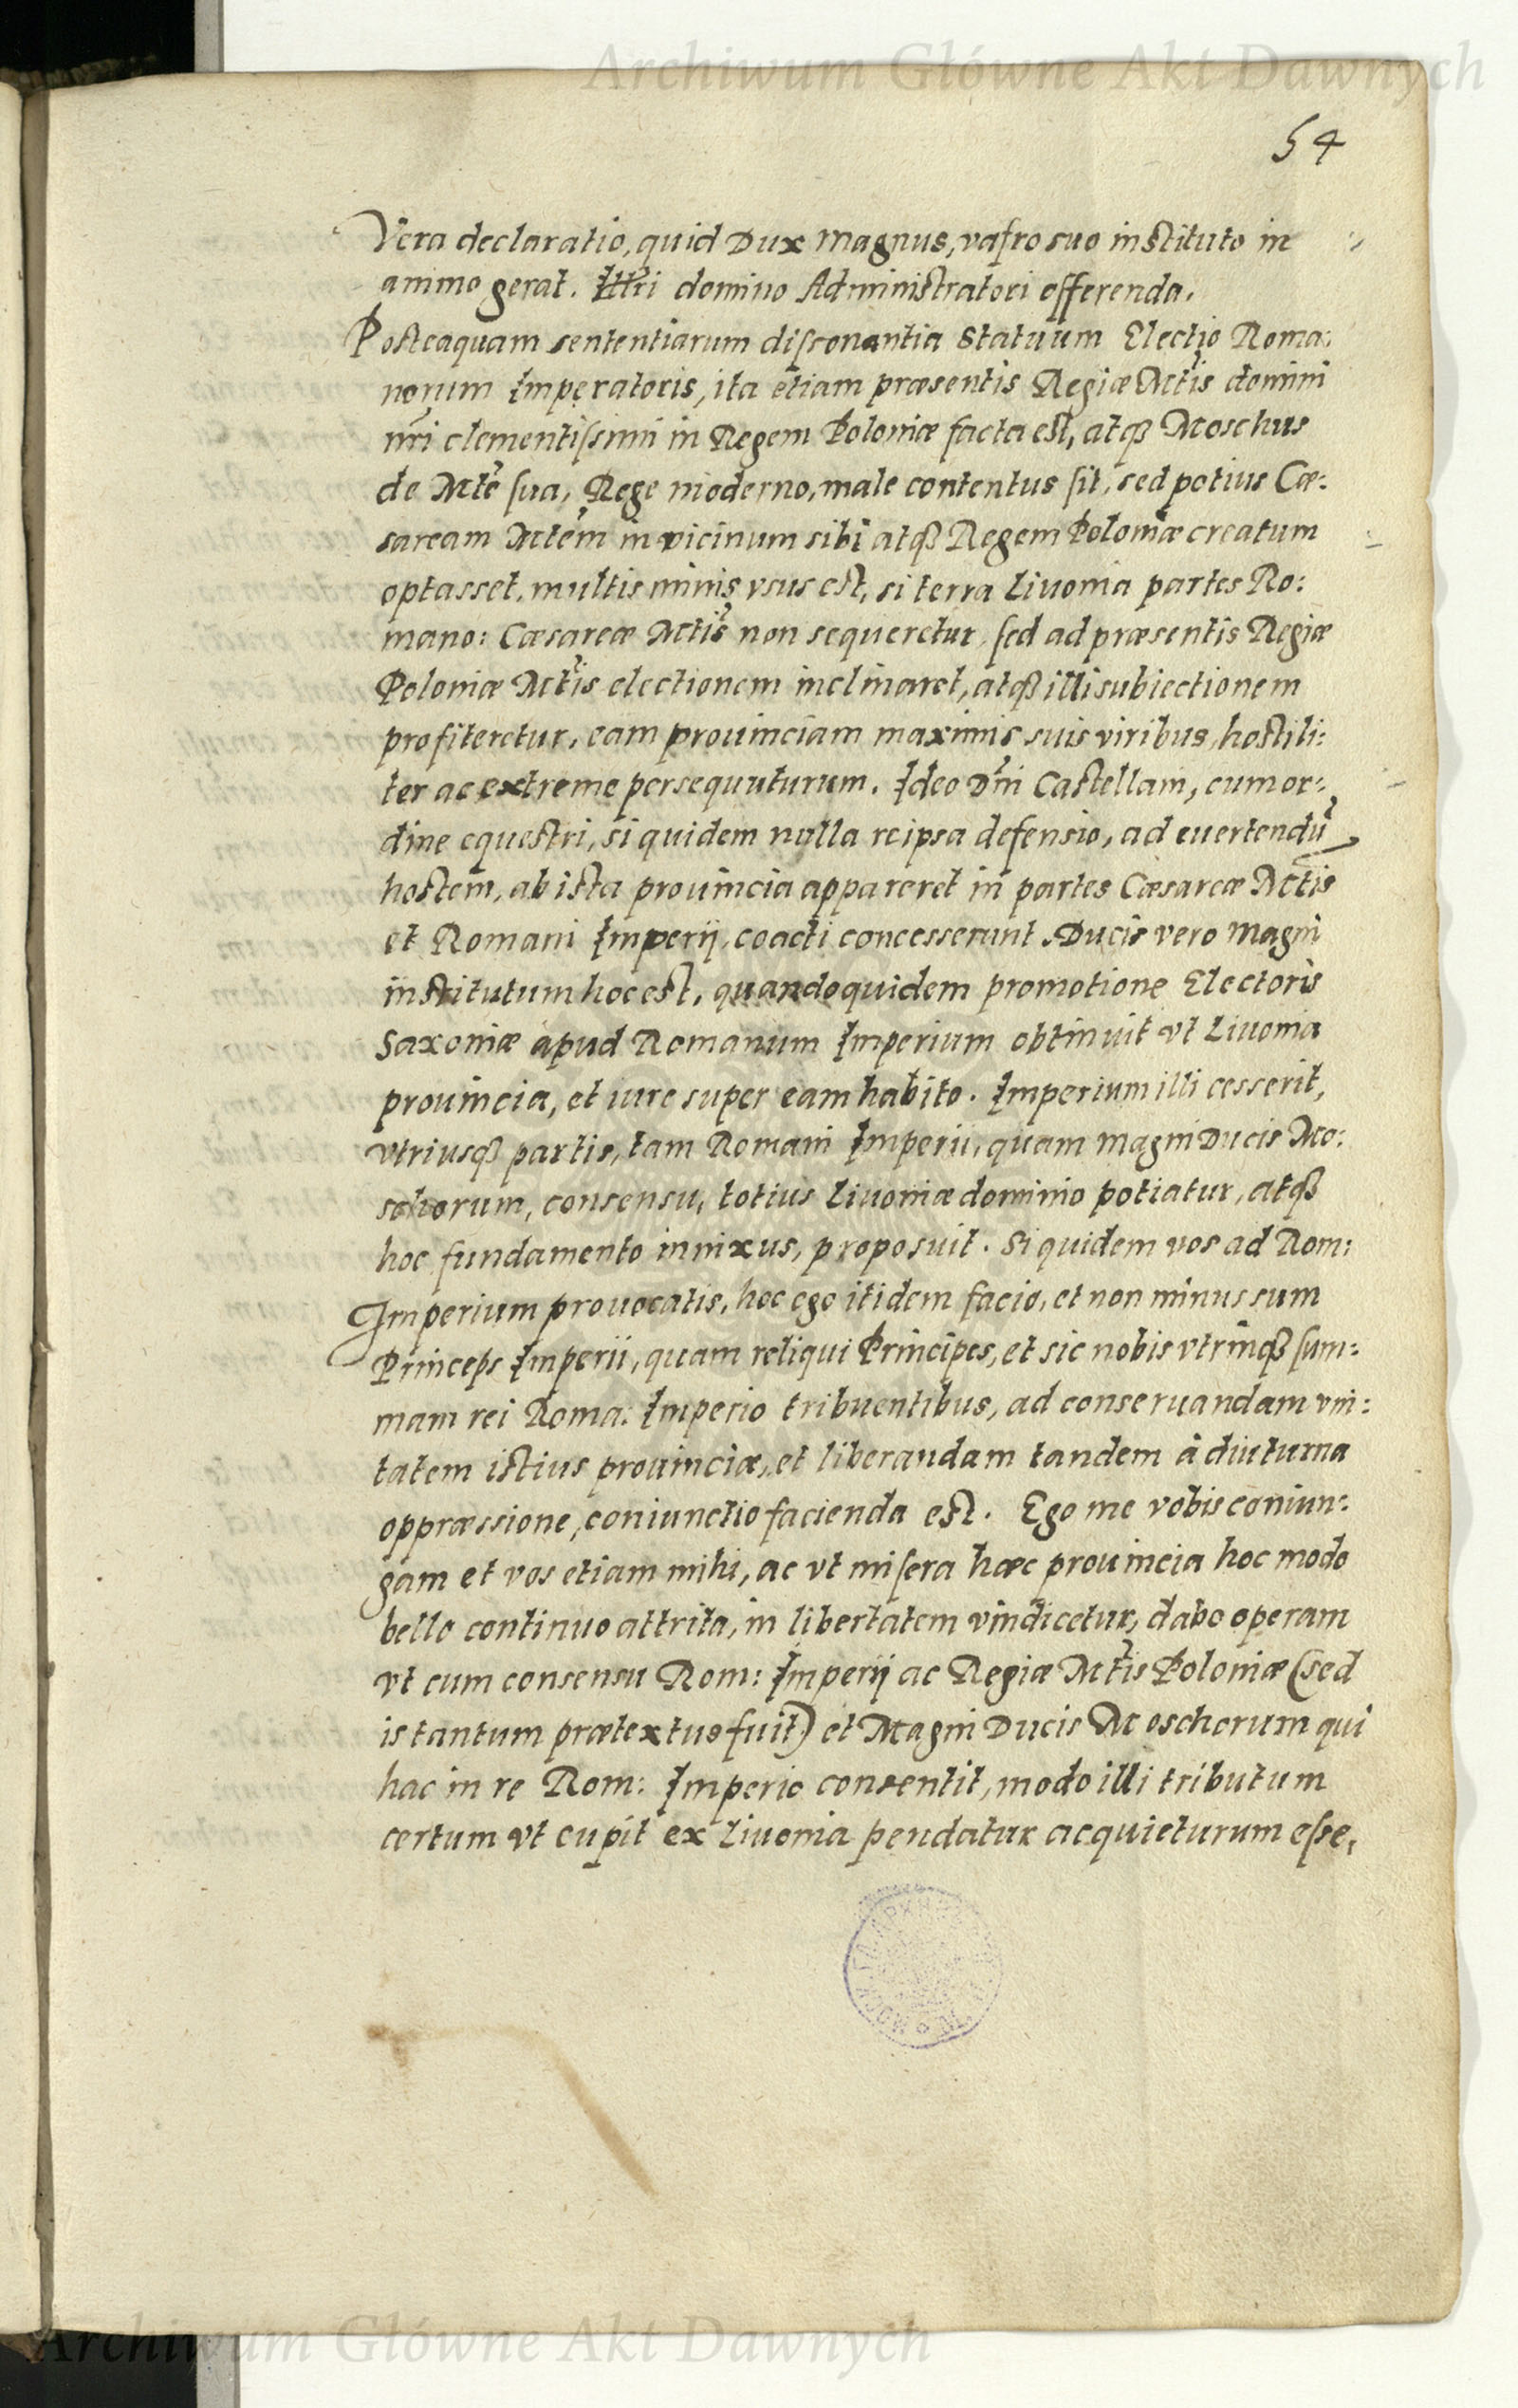 Archiwum Główne Akt Dawnych
54
Vera declaratio, quid Dux Magnus, vafro suo instituto in
animo gerat. Illri domino Administratori offerenda.
Posteaquam sententiarum dissonantia Statuum Electio Roma:
norum Imperatoris, ita etiam præsentis Regiæ Mtis domini
nri clementissimi in Regem Poloniæ facta est, atqȝ Moschus
de Mte sua, Rege moderno, male contentus sit, sed potius Cæ:
saream Mtem in vicinum sibi atqȝ Regem Poloniæ creatum
optasset, multis minis vsus est, si terra Liuonia partes Ro:
mano: Cæsareæ Mtis non sequeretur, sed ad præsentis Regiæ
Poloniæ Mtis electionem inclinaret, atqȝ illi subiectionem
profiteretur, eam prouinciam maximis suis viribus, hostili:
ter ac extreme persequuturum. Ideo Dni Castellani, cum or:
dine equestri, si quidem nulla reipsa defensio, ad euertendū
hostem, ab ista prouincia appareret in partes Cæsareæ Mtis
et Romani Imperij, coacti concesserunt. Ducis vero Magni
institutum hoc est, quandoquidem promotione Electoris
Saxoniæ apud Romanum Imperium obtinuit vt Liuonia
prouincia, et iure super eam habito. Imperium illi cesserit,
vtriusqȝ partis, tam Romani Imperii, quam Magni Ducis Mo:
schorum, consensu, totius Liuoniæ dominio potiatur, atqȝ
hoc fundamento innixus, proposuit. Si quidem vos ad Rom:
Imperium prouocatis, hoc ego itidem facio, et non minus sum
Princeps Imperii, quam reliqui Principes, et sic nobis vtrinqȝ sum:
mam rei Roma: Imperio tribuentibus, ad conseruandam vni:
tatem istius prouinciæ, et liberandam tandem à diuturna
oppræssione, coniunctio facienda est. Ego me vobis coniun:
gam et vos etiam mihi, ac vt misera hæc prouincia hoc modo
bello continuo attrita, in libertatem vindicetur, dabo operam
vt cum consensu Rom: Imperij ac Regiæ Mtis Poloniæ (sed
is tantum prætextus fuit) et Magni Ducis Moschorum qui
hac in re Rom: Imperio consentit, modo illi tributum
certum vt cupit ex Liuonia pendatur acquieturum esse,
Archiwum Główne Akt Dawnych